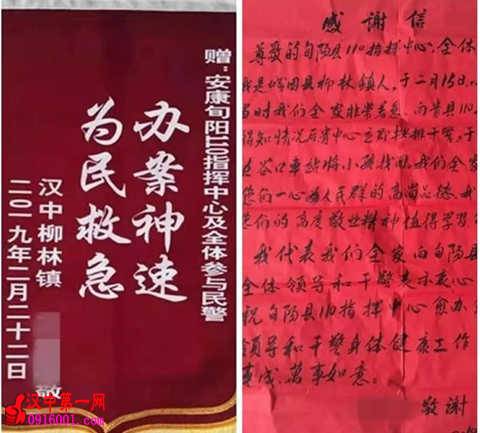 赠：安康旬阳110指挥中心及全体参与民警
办案神速
为民救急
汉中柳林镇
二〇一九年二月二十二日
敬
汉中第一网
0916001.com
感谢信
尊敬的旬阳县110指挥中心全体
我是城固县柳林镇人，于二月15日
当时我们全家非常着急，向旬县110
得知情况后 中心立即 指派干警，于
谷口车站将小孩找到，我们全家
您们一心为人民群的高尚品德，我
您们的高度敬业精神值得学习
我代表我们全家向旬阳县
全体领导和干警表示衷心
祝旬阳县110指挥中心愈办
领导和干警身体健康工作
事成，万事如意。
敬谢